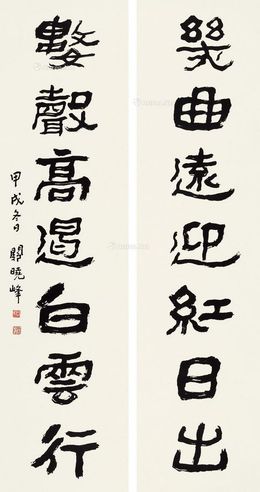 幾曲遠迎紅日出
數聲高遏白雲行
甲戌冬日 關曉峰